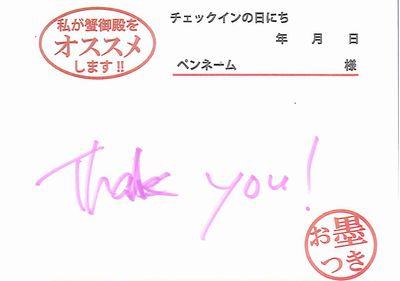 私が蟹御殿を
オススメ
します!!
チェックインの日にち
年 月 日
ペンネーム 様
Thank you!
お墨
つき